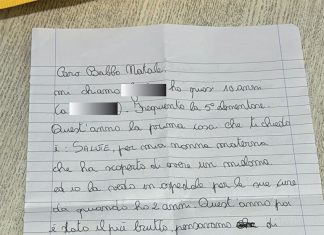 Caro Babbo Natale,
mi chiamo ho quasi 10 anni
(a ). Frequento la 5° elementare.
Quest'anno la prima cosa che ti chiedo
è: SALUTE, per mia nonna materna
che ha scoperto di avere un
ed io la vedo in ospedale per le sue cure
da quando ho 2 anni. Quest'anno poi
è stato il più brutto, pensavamo di